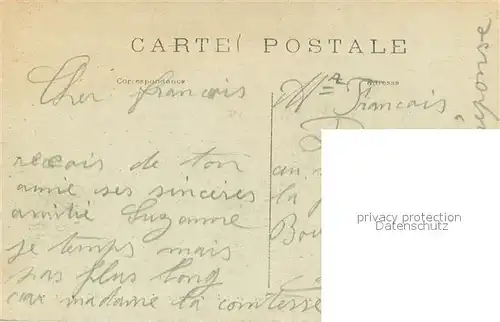 CARTE POSTALE
Correspondance
Adresse
Cher francois
recois de ton
amie ses sinceres
amitié Suzanne
je temps mais
pas plus long
car madame la comtesse
Mr Francois
au
la
Bou
privacy protection
Datenschutz